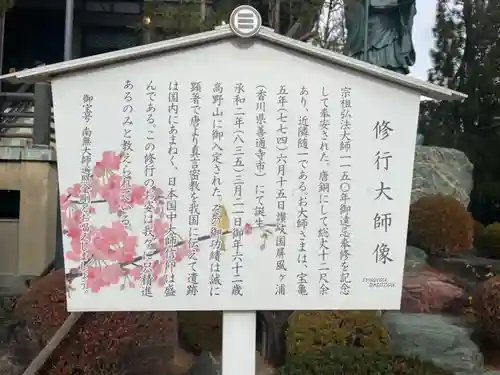 修行大師像
SHUGYOU
DAISHIZOU
宗祖弘法大師一一五〇年御遠忌奉修を記念
して奉安された。唐銅にして総丈十二尺余
あり、近隣随一である。お大師さまは、宝亀
五年(七七四)六月十五日讃岐国屏風ヶ浦
(香川県善通寺市)にて誕生
承和二年(八三五)三月二十一日御年六十二歳
高野山に御入定された。
顕著で唐より真言密教を我国に
は国内にあまねく、日本国中大師信仰
んである。この修行の
あるのみと教えられ
御宝号 南無大師遍照金剛